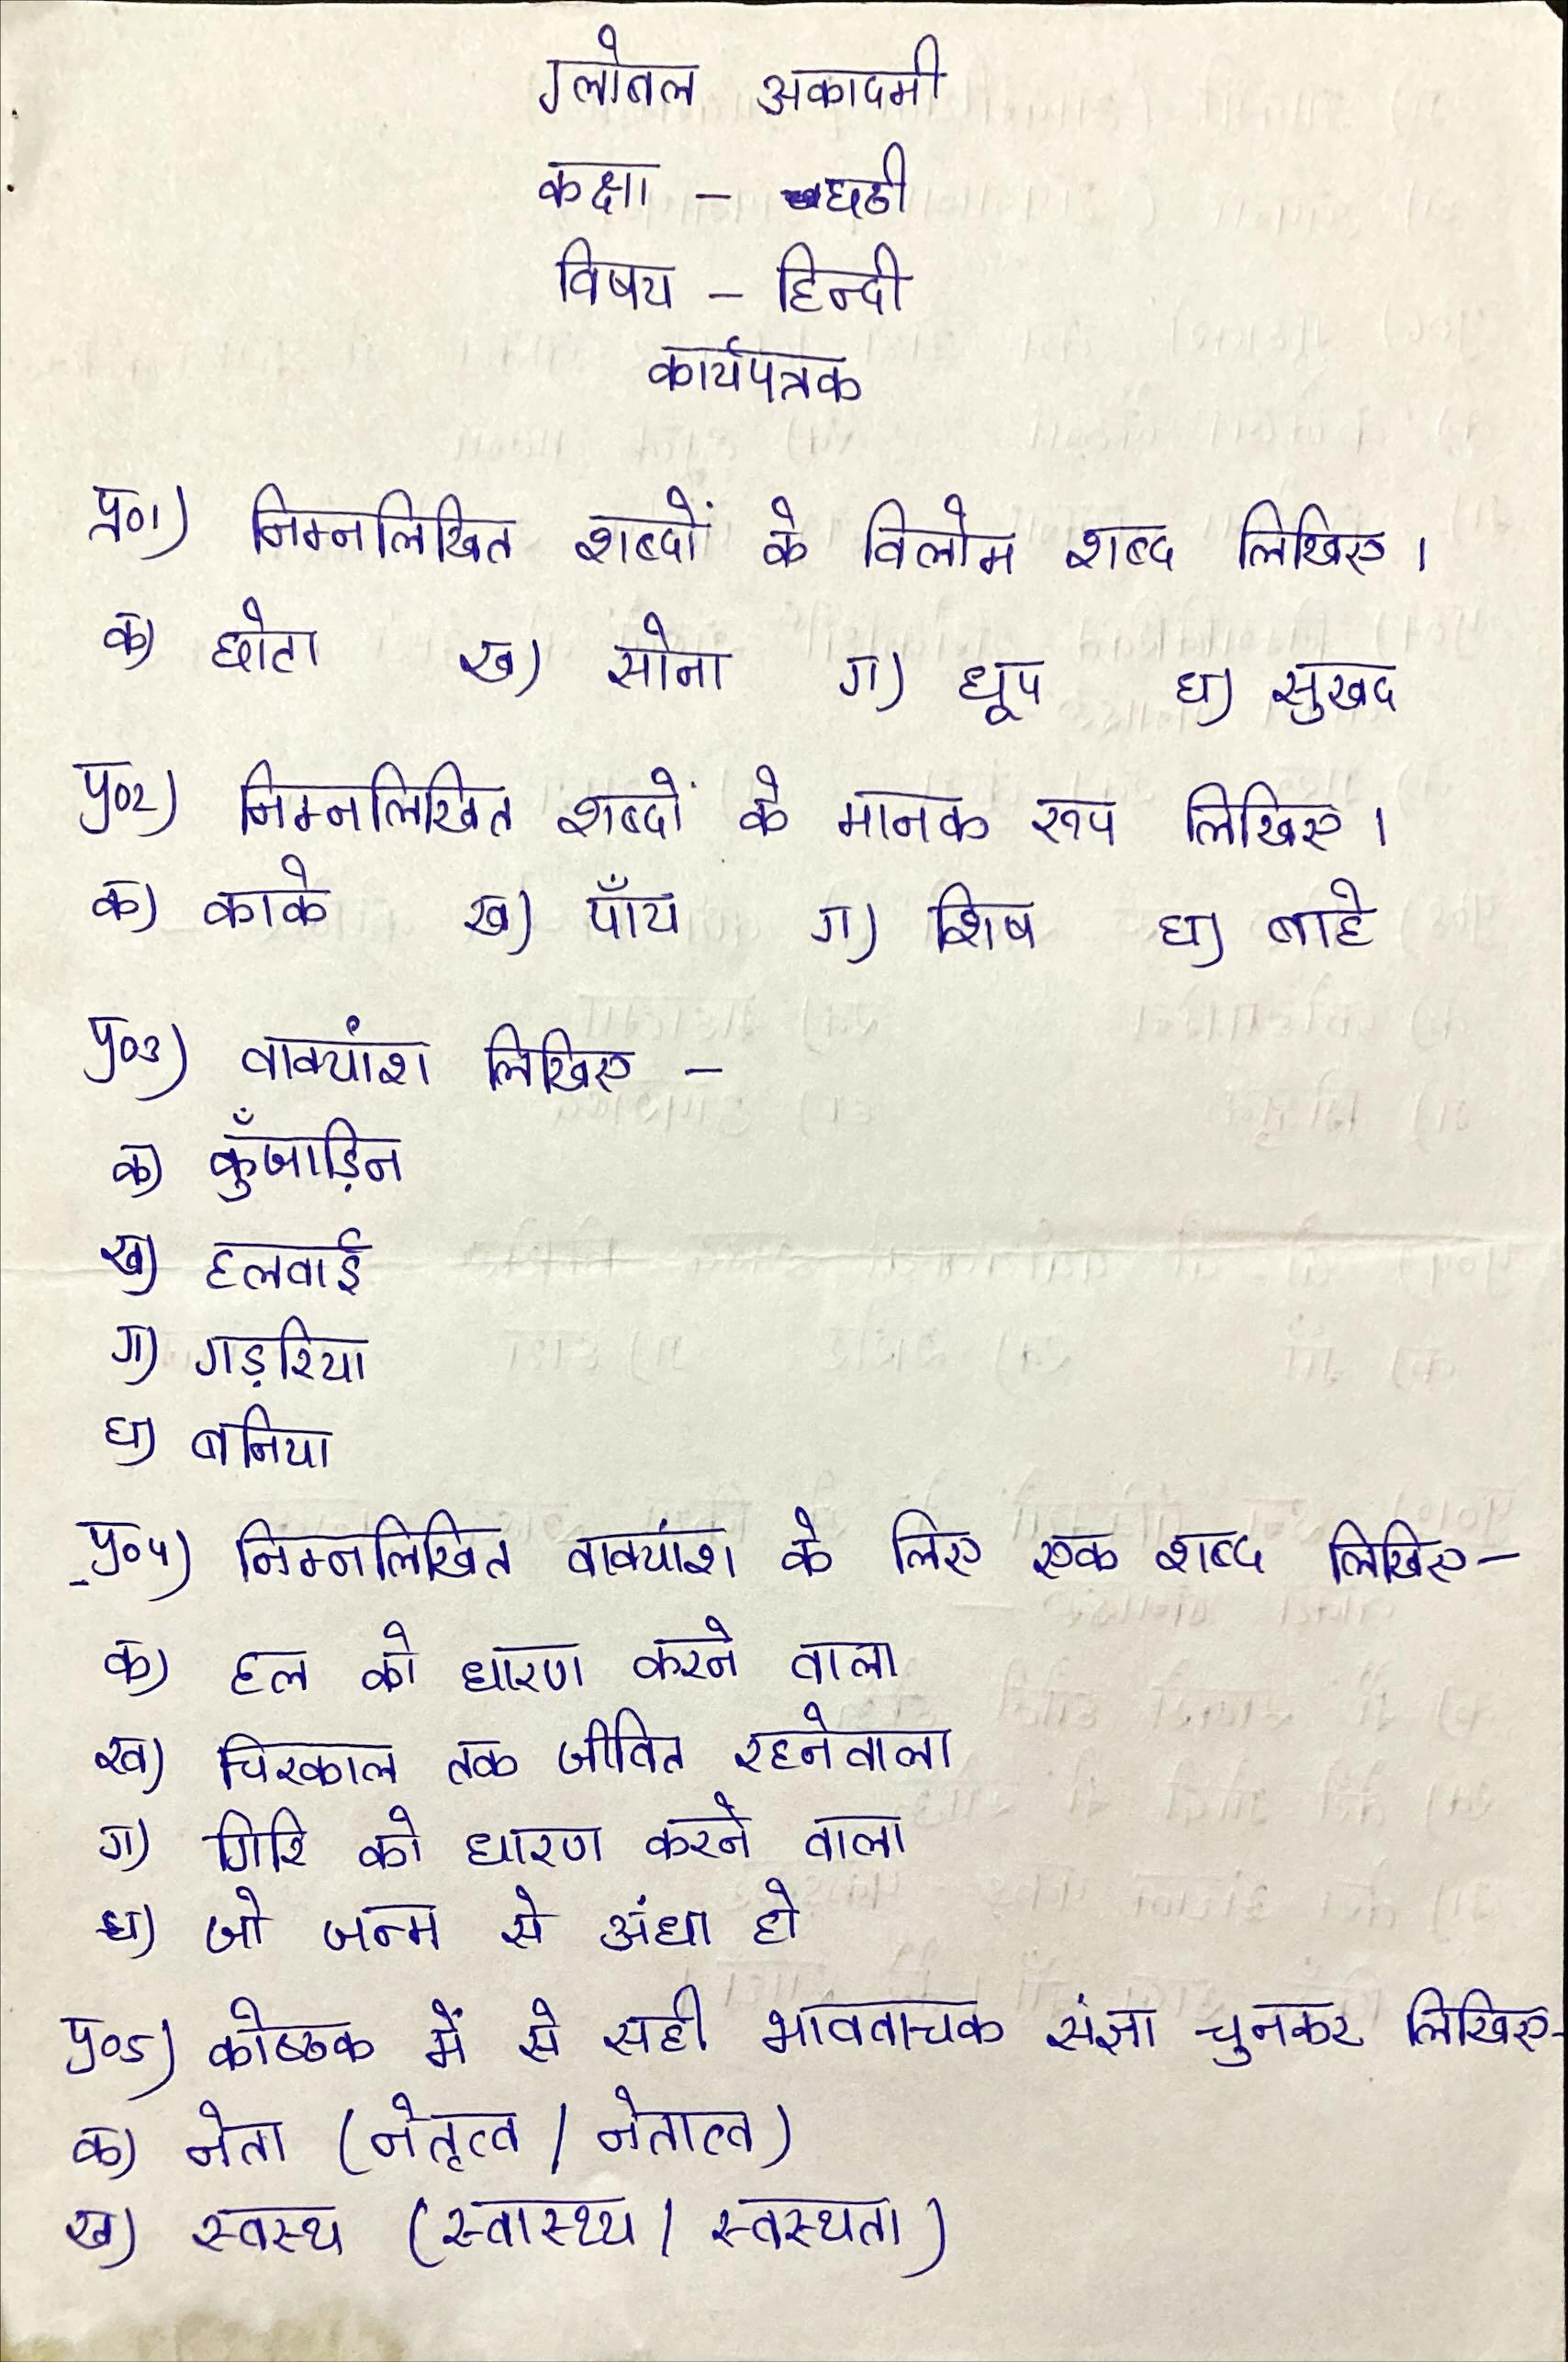 ग्लोबल अकादमी
कक्षा - छठी
विषय - हिन्दी
कार्यपत्रक
प्र०1) निम्नलिखित शब्दों के विलोम शब्द लिखिए।
क) छोटा ख) सोना ग) धूप घ) सुखद
प्र०2) निम्नलिखित शब्दों के मानक रूप लिखिए।
क) काके ख) पाँय ग) शिष घ) बाहे
प्र०3) वाक्यांश लिखिए -
क) कुँजाड़िन
ख) हलवाई
ग) गड़रिया
घ) बनिया
प्र०4) निम्नलिखित वाक्यांश के लिए एक शब्द लिखिए -
क) हल को धारण करने वाला
ख) चिरकाल तक जीवित रहनेवाला
ग) गिरि को धारण करने वाला
घ) जो जन्म से अंधा हो
प्र०5) कोष्ठक में से सही भाववाचक संज्ञा चुनकर लिखिए -
क) नेता (नेतृत्व / नेतात्व)
ख) स्वस्थ (स्वास्थ्य / स्वस्थता)